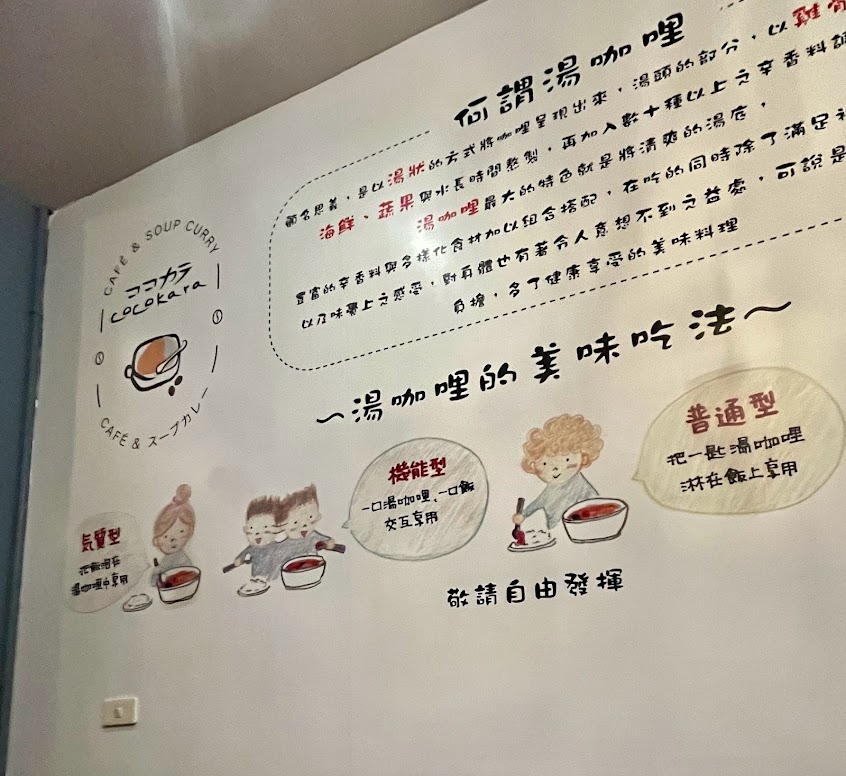 何謂湯咖哩
顧名思義，是以湯狀的方式將咖哩呈現出來，湯頭的部分，以雞骨
海鮮、蔬果與水長時間熬製，再加入數十種以上之辛香料調
湯咖哩最大的特色就是將清爽的湯底，
豐富的辛香料與多樣化食材加以組合搭配，在吃的同時除了滿足視
以及味覺上之感受，對身體也有著令人意想不到之益處，可說是
負擔，多了健康享受的美味料理
CAFÉ & SOUP CURRY
ココカラ
cocokara
CAFÉ & スープカレー
～湯咖哩的美味吃法～
氣質型
把飯泡在
湯咖哩中享用
機能型
一口湯咖哩、一口飯
交互享用
普通型
把一匙湯咖哩
淋在飯上享用
敬請自由發揮